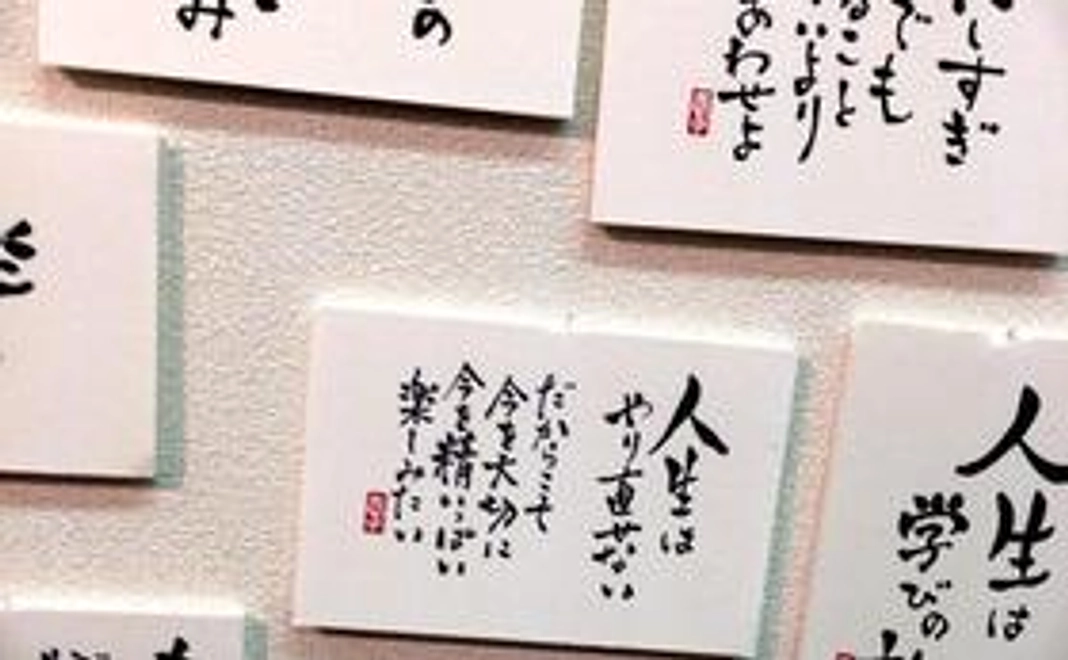 み
の
すぎ
でも
こと
いより
あわせよ
人生は
やり直せない
だからこそ
今を大切に
今を精いっぱい
楽しみたい
人生は
学びの